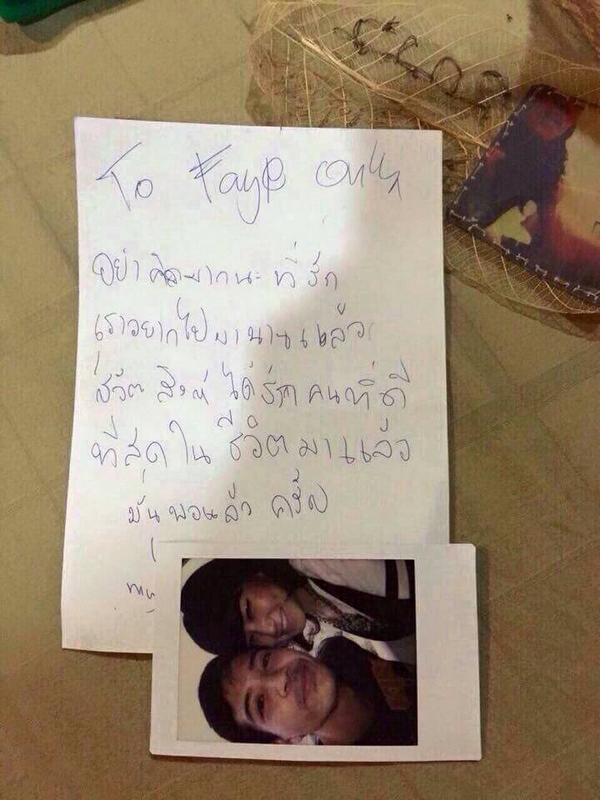 To Faye only
อย่าคิดมากนะ ที่รัก
เราอยากไปมานานแล้ว
ชีวิต สิงห์ ได้รักคนที่ดี
ที่สุดใน ชีวิตมาแล้ว
มันพอแล้ว ครับ